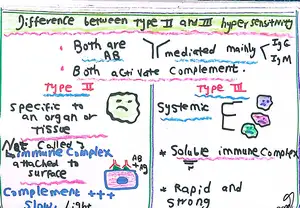 Difference between Type II and III hypersensitivity
• Both are AB mediated mainly IgG IgM
• Both activate Complement.
Type II
specific to
an organ or
tissue
Not Called
Immune Complex
attached to
surface
AB
Ag
Complement +++
Slow,
Type III
Systemic
* Soluble immune Complex
* Rapid and
strong